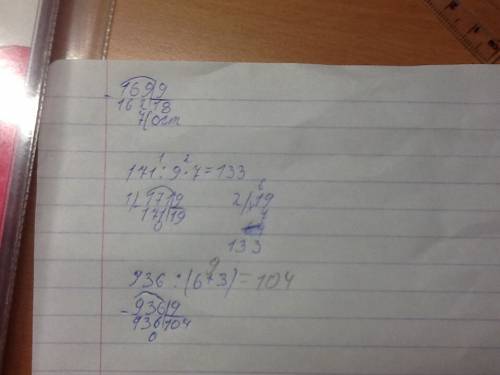 - 169|9
162|18
7(ост
1 2
171:9·7=133
1) 171|9
171|19
0
2) 6
19
7
133
9
936:(6+3)=104
- 936|9
936|104
0